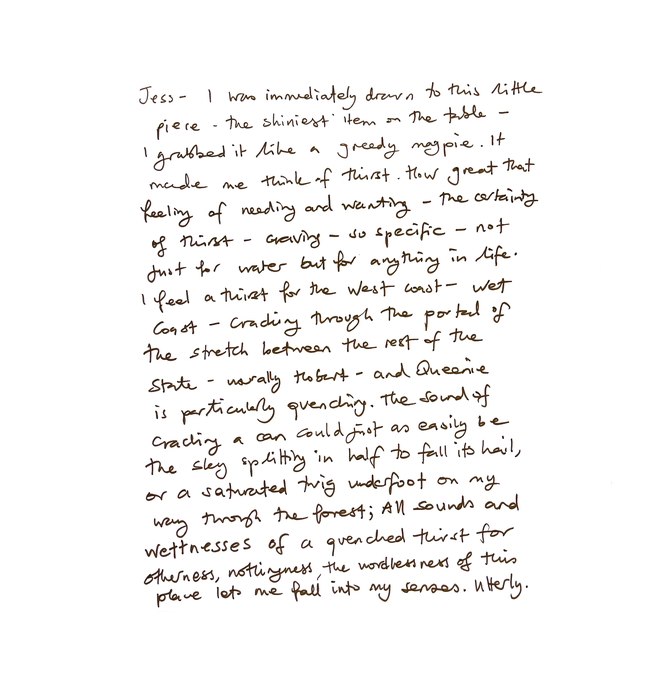 Jess - I was immediately drawn to this little
piece - the shiniest item on the table -
I grabbed it like a greedy magpie. It
made me think of thirst. How great that
feeling of needing and wanting - the certainty
of thirst - craving - so specific - not
just for water but for anything in life.
I feel a thirst for the West coast - wet
coast - cracking through the portal of
the stretch between the rest of the
State - usually Hobart - and Queenie
is particularly quenching. The sound of
cracking a can could just as easily be
the sky splitting in half to fall its hail,
or a saturated twig underfoot on my
way through the forest; All sounds and
wettnesses of a quenched thirst for
otherness, nothingness, the wordlessness of this
place lets me fall into my senses. Utterly.